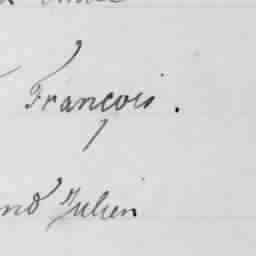 François.
nd Julien